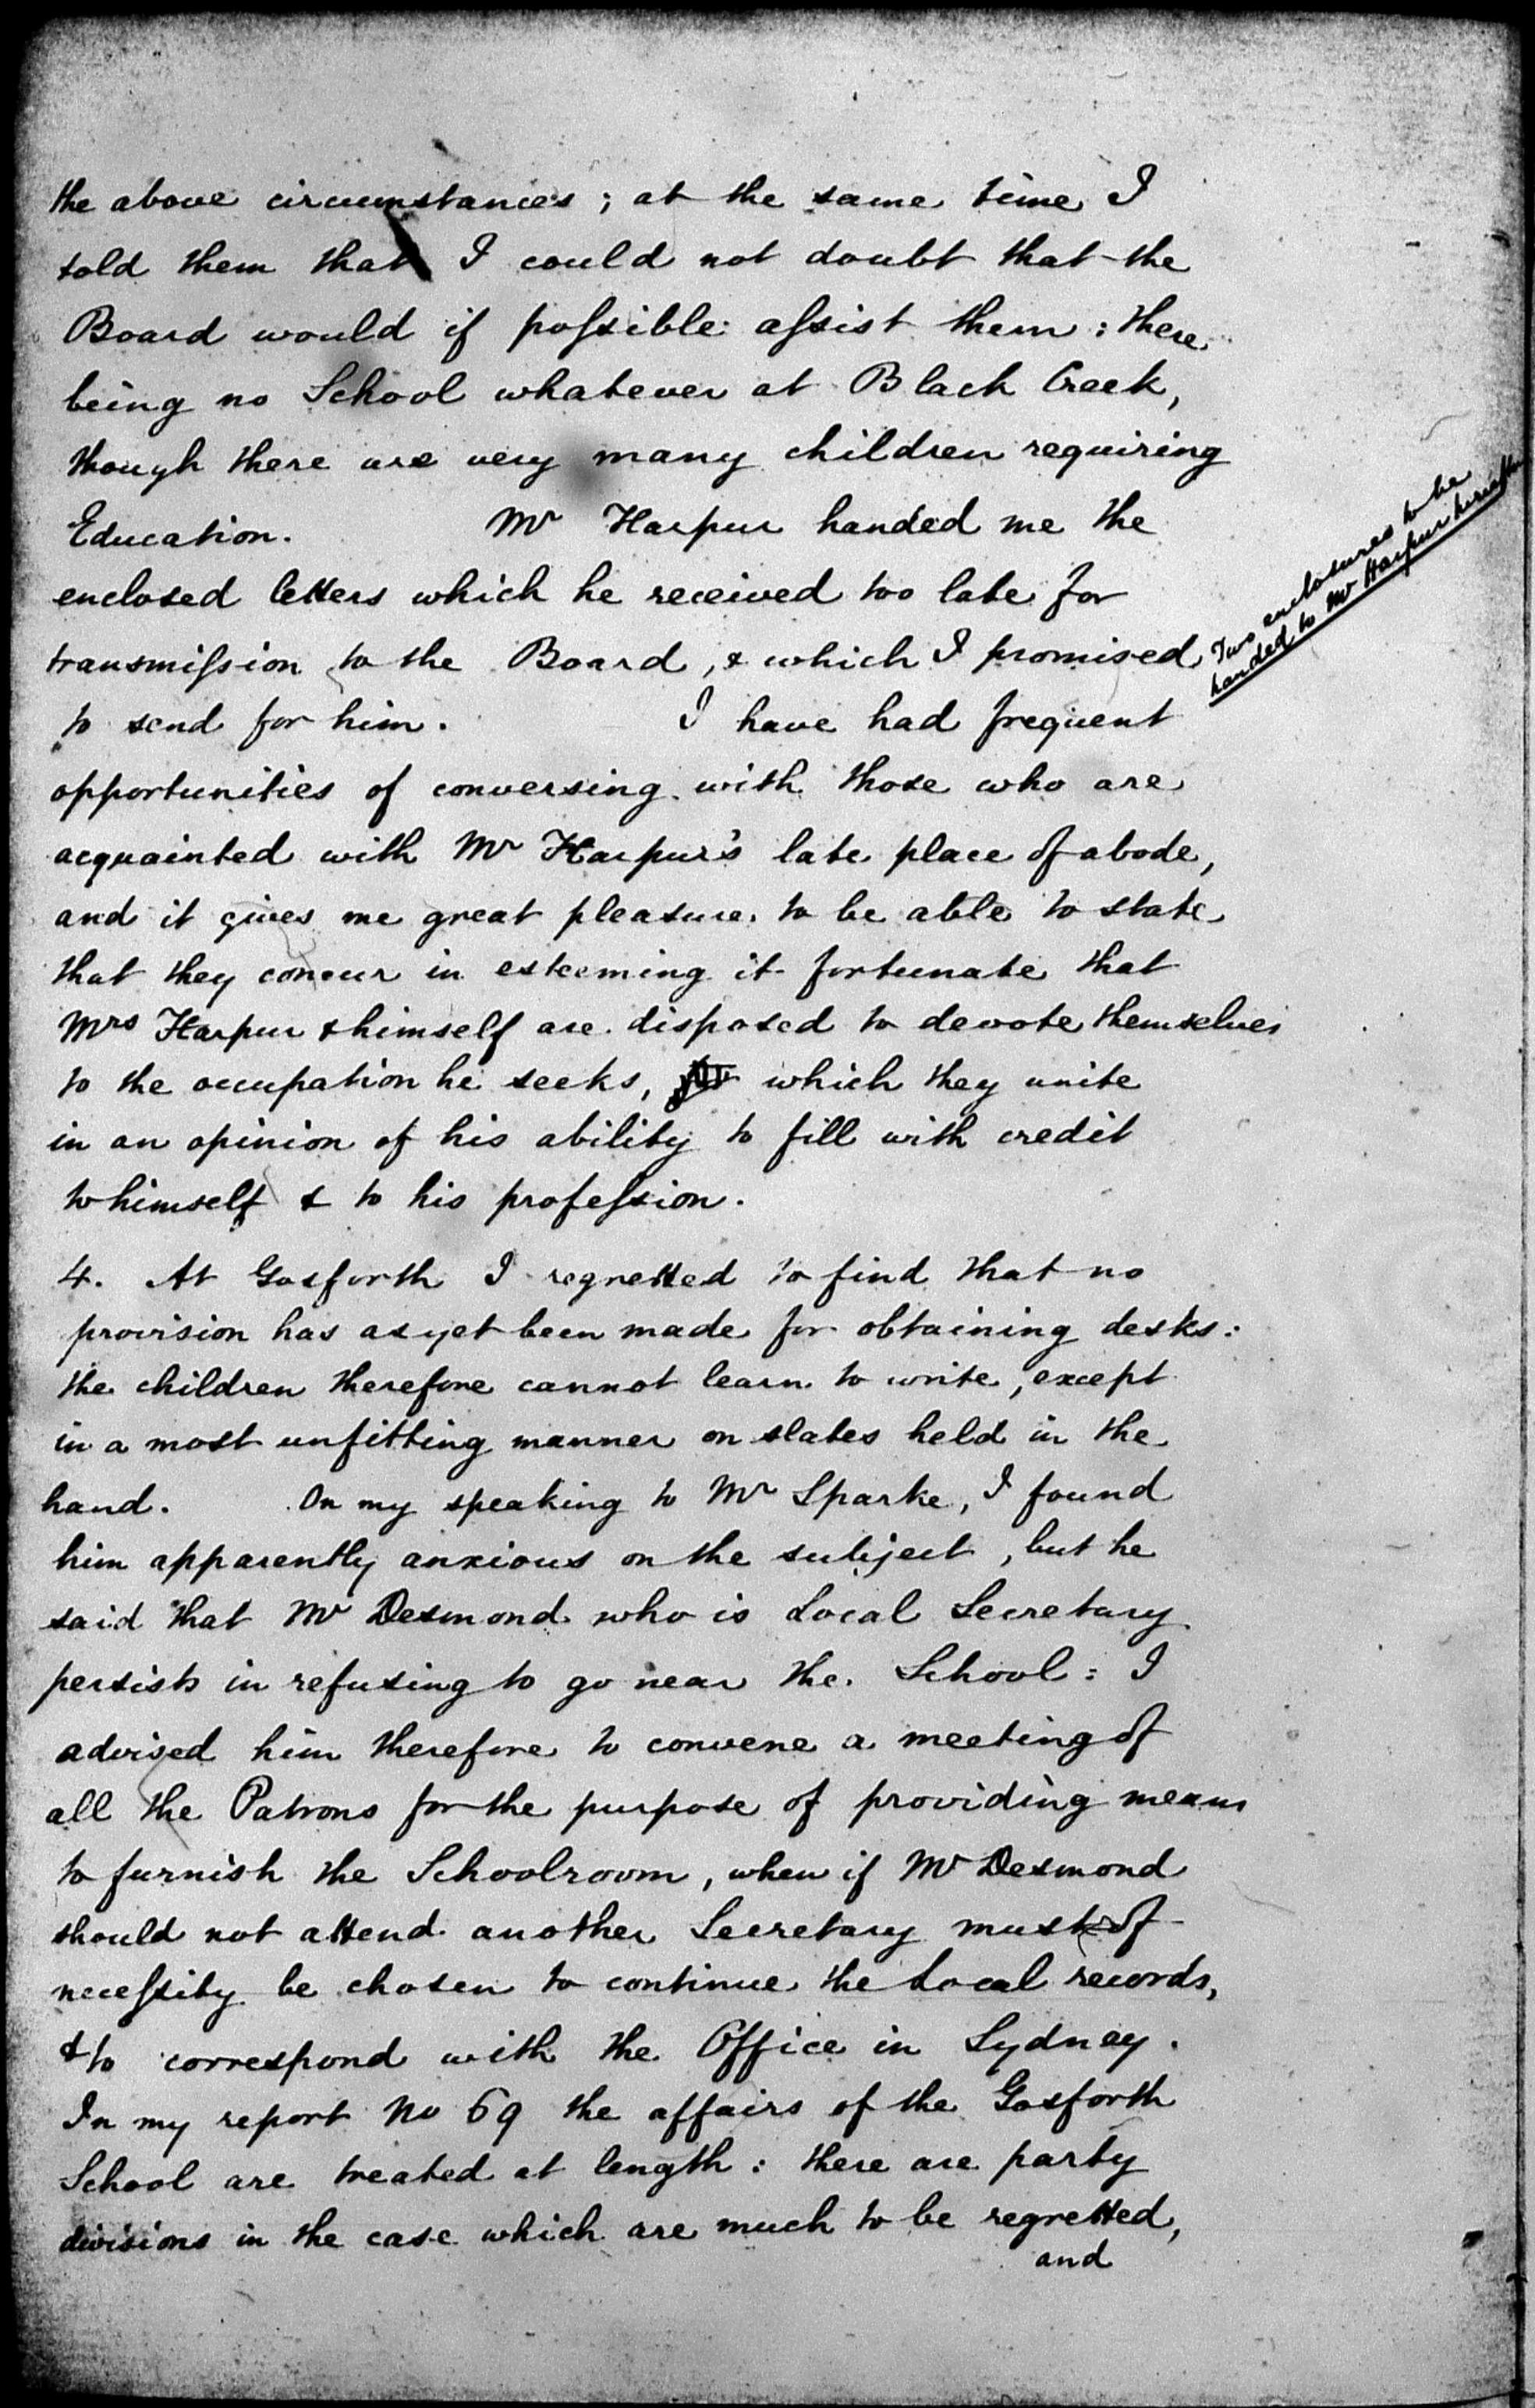 the above circumstances; at the same time I
told them that I could not doubt that the
Board would if poſsible aſsist them: there
being no School whatever at Black Creek,
though there are very many children requiring
Education. Mr Harpur handed me the
enclosed letters which he received too late for
transmiſsion to the Board, & which I promised
to send for him. I have had frequent
opportunities of conversing with those who are
acquainted with Mr Harpur's late place of abode,
and it gives me great pleasure to be able to state
that they concur in esteeming it fortunate that
Mrs Harpur & himself are disposed to devote themselves
to the occupation he seeks, which they unite
in an opinion of his ability to fill with credit
to himself & to his profeſsion.
4. At Gosforth I regretted to find that no
provision has as yet been made for obtaining desks:
the children therefore cannot learn to write, except
in a most unfitting manner on slates held in the
hand. On my speaking to Mr Sparke, I found
him apparently anxious on the subject, but he
said that Mr Desmond who is Local Secretary
persists in refusing to go near the School: I
advised him therefore to convene a meeting of
all the Patrons for the purpose of providing means
to furnish the Schoolroom, when if Mr Desmond
should not attend another Secretary must of
neceſsity be chosen to continue the Local records,
& to correspond with the Office in Sydney.
In my report No 69 the affairs of the Gosforth
School are treated at length: there are party
divisions in the case which are much to be regretted,
and
Two enclosures to be
handed to Mr Harpur hereafter